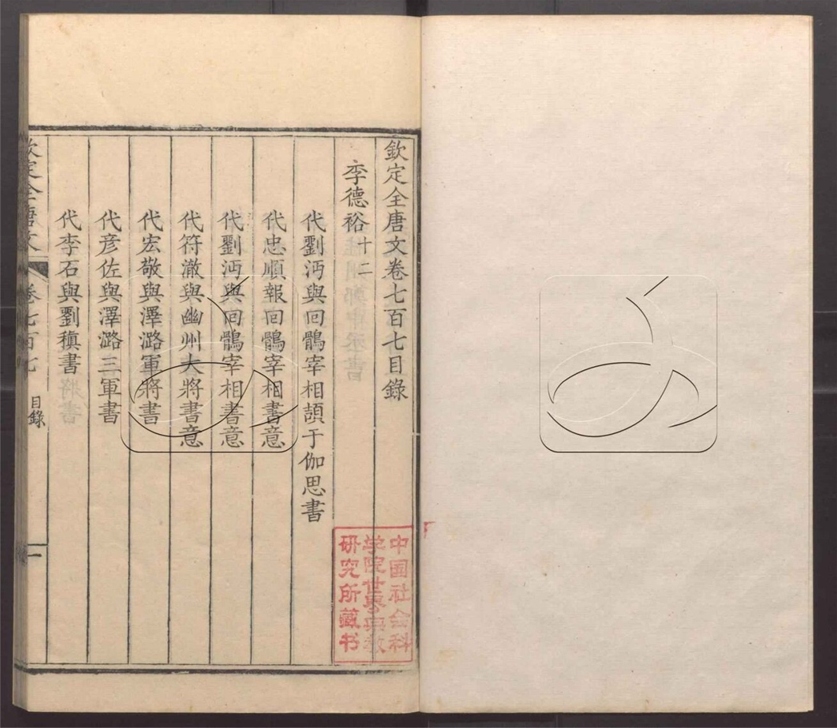 欽定全唐文卷七百七目錄
李德裕十二
代劉沔與回鶻宰相頡于伽思書
代忠順報回鶻宰相書意
代劉沔與回鶻宰相書意
代符澈與幽州大將書意
代宏敬與澤潞軍將書
代彥佐與澤潞三軍書
代李石與劉稹書
欽定全唐文 卷七百七 目錄 一
中国社会科
学院世界宗教
研究所藏书